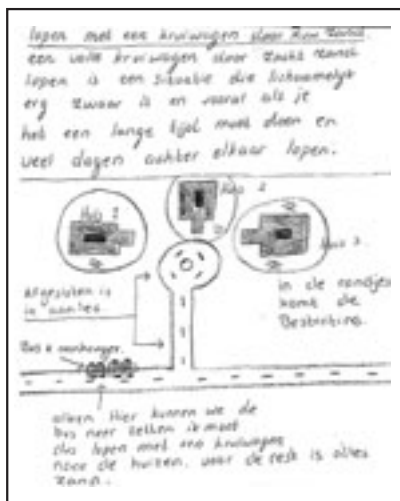 lopen met een kruiwagen door los zand.
een volle kruiwagen door zacht zand
lopen is een situatie die lichamelijk
erg zwaar is en vooral als je
het een lange tijd moet doen en
veel dagen achter elkaar lopen.
Huis 1
Huis 2
Huis 3
Afgesloten is
in aanleg
in de rondjes
komt de
Bestrating.
Bus + aanhanger.
alleen Hier kunnen we de
bus neer zetten ik moet
dus lopen met een kruiwagen
naar de huizen, voor de rest is alles
zand.